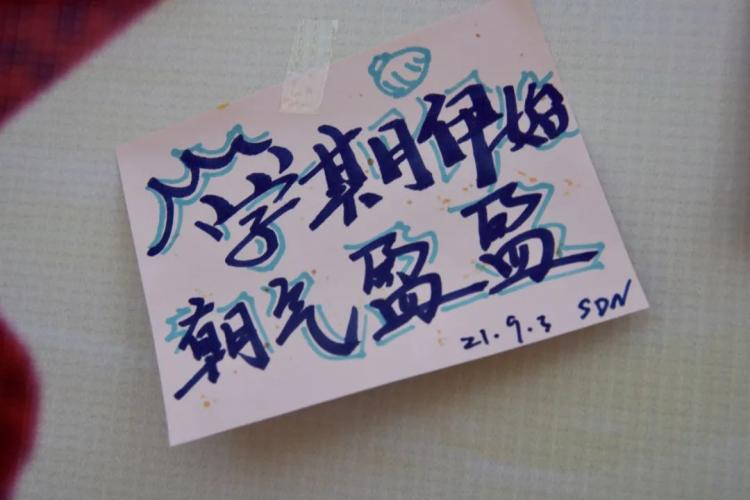 学期伊始
朝气盈盈
21.9.3 SDN